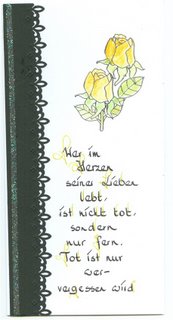 Wer im
Herzen
seiner Lieben
lebt,
ist nicht tot,
sondern
nur fern.
Tot ist nur
wer
vergessen wird